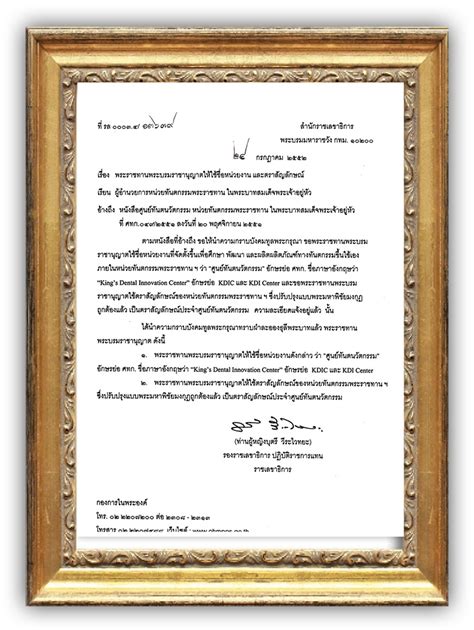 ที่ รล ๐๐๐๓.๔/
สำนักราชเลขาธิการ
พระบรมมหาราชวัง กทม. ๑๐๒๐๐
๒๔ กรกฎาคม ๒๕๕๒
เรื่อง พระราชทานพระบรมราชานุญาตให้ใช้ชื่อหน่วยงาน และตราสัญลักษณ์
เรียน ผู้อำนวยการหน่วยทันตกรรมพระราชทาน ในพระบาทสมเด็จพระเจ้าอยู่หัว
อ้างถึง หนังสือศูนย์ทันตนวัตกรรม หน่วยทันตกรรมพระราชทาน ในพระบาทสมเด็จพระเจ้าอยู่หัว
ที่ ศทก.๐๑๙/๒๕๕๑ ลงวันที่ ๒๐ พฤศจิกายน ๒๕๕๑
ตามหนังสือที่อ้างถึง ขอให้นำความกราบบังคมทูลพระกรุณา ขอพระราชทานพระบรม
ราชานุญาตใช้ชื่อหน่วยงานที่จัดตั้งขึ้นเพื่อศึกษา พัฒนา และผลิตผลิตภัณฑ์ทางทันตกรรมขึ้นใช้เอง
ภายในหน่วยทันตกรรมพระราชทาน ฯ ว่า "ศูนย์ทันตนวัตกรรม" อักษรย่อ ศทก. ชื่อภาษาอังกฤษว่า
"King's Dental Innovation Center" อักษรย่อ KDIC และ KDI Center และขอพระราชทานพระบรม
ราชานุญาตใช้ตราสัญลักษณ์ของหน่วยทันตกรรมพระราชทาน ฯ ซึ่งปรับปรุงแบบพระมหาพิชัยมงกุฎ
ถูกต้องแล้ว เป็นตราสัญลักษณ์ประจำศูนย์ทันตนวัตกรรม ความละเอียดแจ้งอยู่แล้ว นั้น
ได้นำความกราบบังคมทูลพระกรุณาทราบฝ่าละอองธุลีพระบาทแล้ว พระราชทาน
พระบรมราชานุญาต ดังนี้
๑. พระราชทานพระบรมราชานุญาตให้ใช้ชื่อหน่วยงานดังกล่าว ว่า "ศูนย์ทันตนวัตกรรม"
อักษรย่อ ศทก. ชื่อภาษาอังกฤษว่า "King's Dental Innovation Center" อักษรย่อ KDIC และ KDI Center
๒. พระราชทานพระบรมราชานุญาตให้ใช้ตราสัญลักษณ์ของหน่วยทันตกรรมพระราชทาน ฯ
ซึ่งปรับปรุงแบบพระมหาพิชัยมงกุฎถูกต้องแล้ว เป็นตราสัญลักษณ์ประจำศูนย์ทันตนวัตกรรม
(ท่านผู้หญิงบุตรี วีระไวทยะ)
รองราชเลขาธิการ ปฏิบัติราชการแทน
ราชเลขาธิการ
กองการในพระองค์
โทร. ๐๒ ๒๒๐๗๒๐๐ ต่อ ๒๓๐๘ - ๒๓๑๓